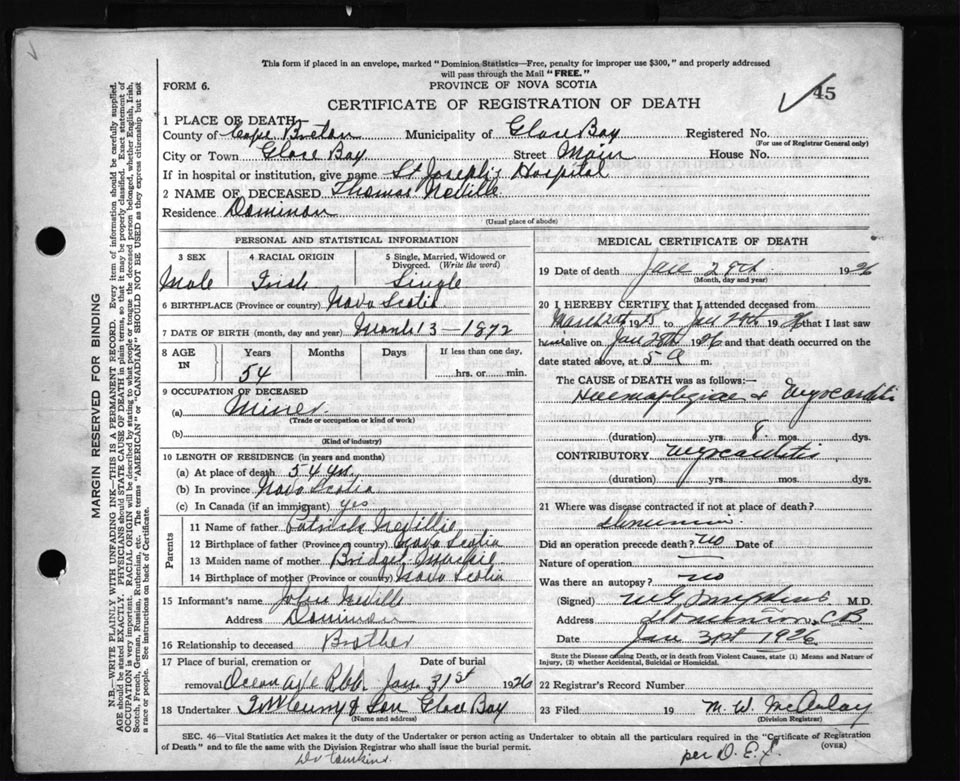 This form if placed in an envelope, marked "Dominion Statistics—Free, penalty for improper use $300," and properly addressed
will pass through the Mail "FREE."
FORM 6.
PROVINCE OF NOVA SCOTIA
CERTIFICATE OF REGISTRATION OF DEATH
45
1 PLACE OF DEATH
County of Cape Breton Municipality of Glace Bay Registered No.
(For use of Registrar General only)
City or Town Glace Bay Street Main House No.
If in hospital or institution, give name St Joseph's Hospital
2 NAME OF DECEASED Thomas Neville
Residence Dominion
(Usual place of abode)
PERSONAL AND STATISTICAL INFORMATION
3 SEX 4 RACIAL ORIGIN 5 Single, Married, Widowed or
Divorced. (Write the word)
Male Irish Single
6 BIRTHPLACE (Province or country) Nova Scotia
7 DATE OF BIRTH (month, day and year) March 13—1872
8 AGE IN Years Months Days If less than one day,
54 hrs. or min.
9 OCCUPATION OF DECEASED
(a) Miner
(Trade or occupation or kind of work)
(b)
(Kind of industry)
10 LENGTH OF RESIDENCE (in years and months)
(a) At place of death 54 yrs
(b) In province Nova Scotia
(c) In Canada (if an immigrant) yes
Parents
11 Name of father Patrick Nevillie
12 Birthplace of father (Province or country) Nova Scotia
13 Maiden name of mother Bridget
14 Birthplace of mother (Province or country) Nova Scotia
15 Informant's name John Neville
Address Dominion
16 Relationship to deceased Brother
17 Place of burial, cremation or Date of burial
removal Ocean Ave Jan. 31st 1926
18 Undertaker & Son Glace Bay
(Name and address)
MEDICAL CERTIFICATE OF DEATH
19 Date of death Jan 28th 1926
(Month, day and year)
20 I HEREBY CERTIFY that I attended deceased from
1925 to Jan 28th 1926 that I last saw
him alive on Jan 28th 1926 and that death occurred on the
date stated above, at 5 a m.
The CAUSE OF DEATH was as follows:—
& Myocarditis
(duration) yrs. 8 mos. dys.
CONTRIBUTORY Myocarditis
(duration) yrs. mos. dys.
21 Where was disease contracted if not at place of death?
Did an operation precede death? no Date of
Nature of operation
Was there an autopsy? no
(Signed) M.D.
Address Dominion, C.B.
Date Jan 1926
State the Disease causing Death, or in death from Violent Causes, state (1) Means and Nature of
Injury, (2) whether Accidental, Suicidal or Homicidal.
22 Registrar's Record Number
23 Filed 19 M. W. McAulay
(Division Registrar)
SEC. 46—Vital Statistics Act makes it the duty of the Undertaker or person acting as Undertaker to obtain all the particulars required in the "Certificate of Registration
of Death" and to file the same with the Division Registrar who shall issue the burial permit.
(OVER)
per D. E. S.
MARGIN RESERVED FOR BINDING
N.B.—WRITE PLAINLY WITH UNFADING INK—THIS IS A PERMANENT RECORD. Every item of information should be carefully supplied.
AGE should be stated EXACTLY. PHYSICIANS should STATE CAUSE OF DEATH in plain terms, so that it may be properly classified. Exact statement of
OCCUPATION is very important. RACIAL ORIGIN will be described by stating to what people or tongue the deceased person belonged, whether English, Irish,
Scotch, French, German, Russian, Ruthenian, etc. The terms "AMERICAN" or "CANADIAN" SHOULD NOT BE USED as they express citizenship but not
a race or people. See instructions on back of Certificate.